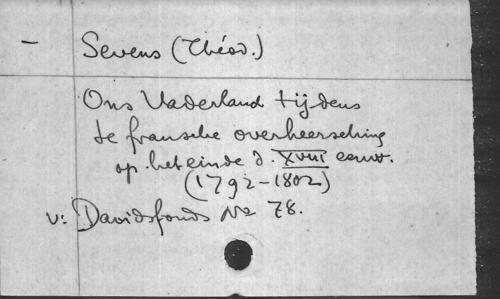 — Sevens (Théod.)
Ons Vaderland tijdens
de fransche overheersching
op het einde d. XVIII eeuw.
(1792-1802)
v: Davidsfonds No 78.